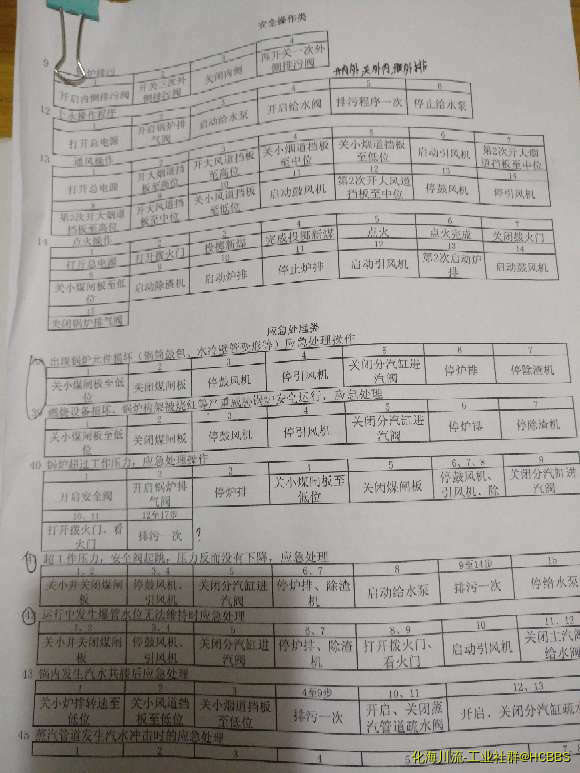 安全操作类
9 炉排污
1 2 3 4
开启内侧排污阀 开关一次外侧排污阀 关闭内侧 再开关一次外侧排污阀
开内外 关外内
12 上水操作程序
1 2 3 4 5 6
打开总电源 开启锅炉排气阀 启动给水泵 开启给水阀 排污程序一次 停止给水泵
13 通风操作
1 2 3 4 5 6 7
打开总电源 开大烟道挡板至高位 开大风道挡板至高位 关小烟道挡板至中位 关小烟道挡板至低位 启动引风机 第2次开大烟道挡板至中位
8 9 10 11 12 13 14
第2次开大烟道挡板至高位 开大风道挡板至中位 关小风道挡板至低位 启动鼓风机 第2次开大风道挡板至中位 停鼓风机 停引风机
14 点火操作
1 2 3 4 5 6 7
打开总电源 打开拨火门 投掷新煤 完成投掷新煤 点火 点火完成 关闭拨火门
8 9 10 11 12 13 14
关小煤闸板至低位 启动除渣机 启动炉排 停止炉排 启动引风机 第2次启动炉排 启动鼓风机
15
关闭锅炉排气阀
应急处理类
出现锅炉元件损坏（锅筒鼓包、水冷壁管变形等）应急处理操作
1 2 3 4 5 6 7
关小煤闸板至低位 关闭煤闸板 停鼓风机 停引风机 关闭分汽缸进汽阀 停炉排 停除渣机
39 燃烧设备损坏、锅炉构架被烧红等严重威胁锅炉安全运行，应急处理
1 2 3 4 5 6 7
关小煤闸板至低位 关闭煤闸板 停鼓风机 停引风机 关闭分汽缸进汽阀 停炉排 停除渣机
40 锅炉超过工作压力，应急处理操作
1 2 3 4 5 6、7、8 9
开启安全阀 开启锅炉排气阀 停炉排 关小煤闸板至低位 关闭煤闸板 停鼓风机、引风机、除 关闭分汽缸进汽阀
10、11 12至17步
打开拨火门、看火门 排污一次 ?
41 超工作压力，安全阀起跳，压力反而没有下降，应急处理
1、2 3、4 5 6、7 8 9至14步 15
关小并关闭煤闸板 停鼓风机、引风机 关闭分汽缸进汽阀 停炉排、除渣机 启动给水泵 排污一次 停给水泵
42 运行中发生爆管水位无法维持时应急处理
1、2 3、4 5 6、7 8、9 10 11、12
关小并关闭煤闸板 停鼓风机、引风机 关闭分汽缸进汽阀 停炉排、除渣机 打开拨火门、看火门 启动引风机 关闭主汽阀给水阀
43 锅内发生汽水共腾后应急处理
1 2 3 4至9步 10、11 12、13
关小炉排转速至低位 关小风道挡板至低位 关小烟道挡板至低位 排污一次 开启、关闭蒸汽管道疏水阀 开启、关闭分汽缸疏水
45 蒸汽管道发生汽水冲击时的应急处理
1 2 3 4 5
化海川流-工业社群@HCBBS